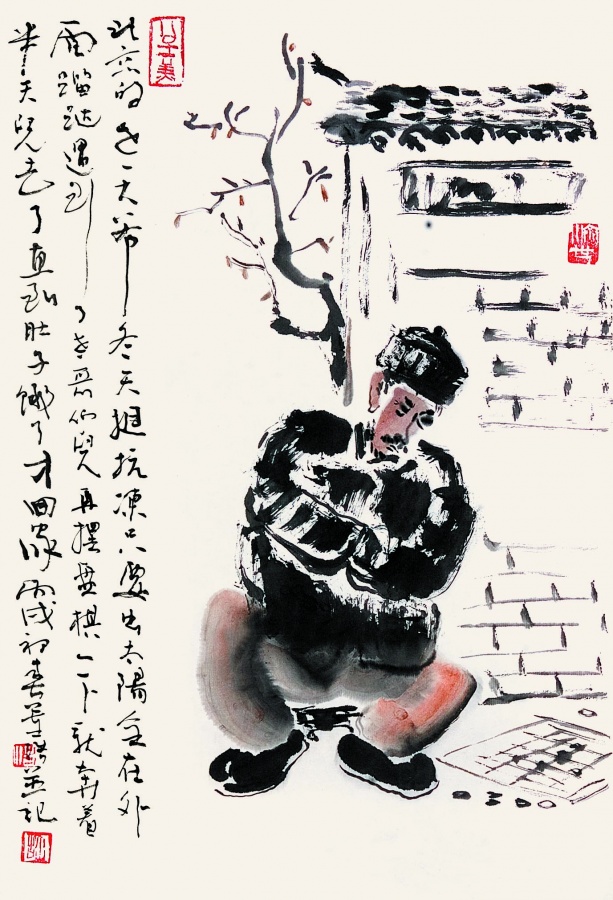 北京的老大爷冬天挺抗冻只要出太阳全在外
面蹓跶遇到了老哥们儿再摆盘棋一下就奔着
半天儿去了直到肚子饿了才回家丙戌初春并记